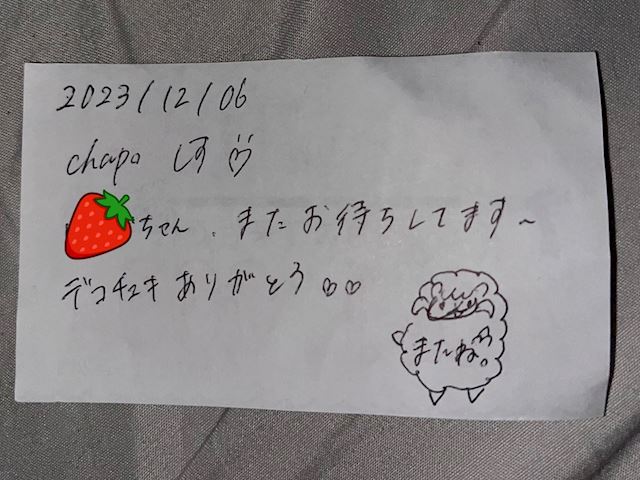 2023/12/06
chapo しす♡
ちゃん、またお待ちしてます~
デコチェキありがとう♡♡
またね。